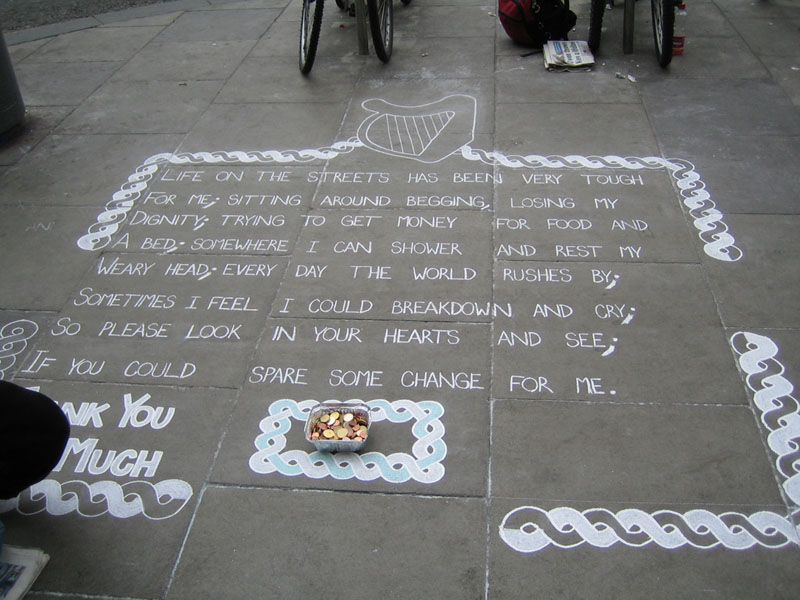 LIFE ON THE STREETS HAS BEEN VERY TOUGH
FOR ME; SITTING AROUND BEGGING, LOSING MY
DIGNITY; TRYING TO GET MONEY FOR FOOD AND
A BED; SOMEWHERE I CAN SHOWER AND REST MY
WEARY HEAD; EVERY DAY THE WORLD RUSHES BY;
SOMETIMES I FEEL I COULD BREAKDOWN AND CRY;
SO PLEASE LOOK IN YOUR HEARTS AND SEE;
IF YOU COULD SPARE SOME CHANGE FOR ME.
YOU
MUCH